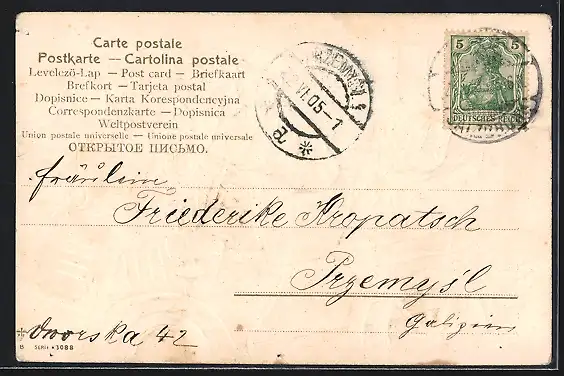 Carte postale
Postkarte — Cartolina postale
Levelező-Lap — Post card — Briefkaart
Brefkort — Tarjeta postal
Dopisnice — Karta Korespondencyjna
Correspondenzkarte — Dopisnica
Weltpostverein
Union postale universelle — Unione postale universale
ОТКРЫТОЕ ПИСЬМО.
5 5
DEUTSCHES REICH
PRZEMYŚL
VI.05-1
Fräulein
Friederike Kropatsch
Przemyśl
Galizien
Dworska 42
SERIE 3088